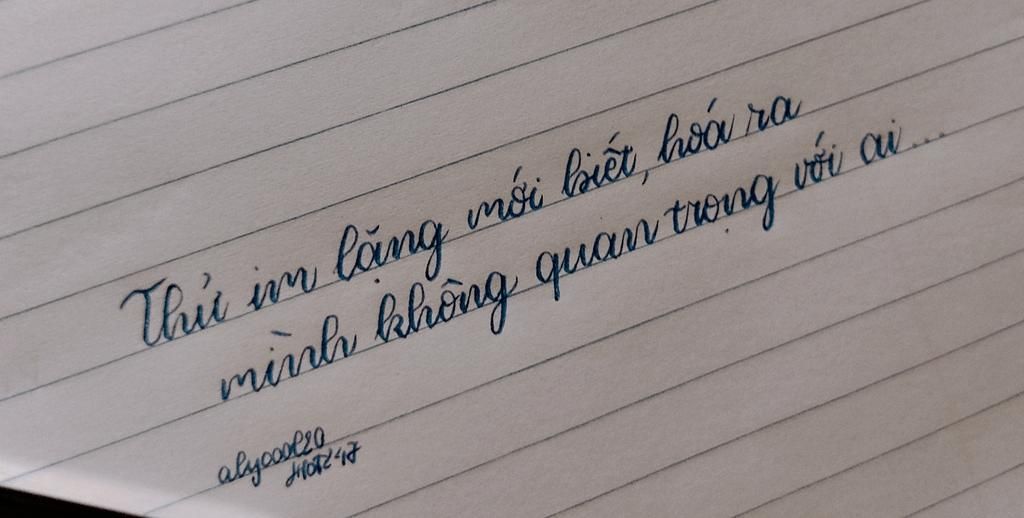 Thử im lặng mới biết, hoá ra
mình không quan trọng với ai...
alyoool20